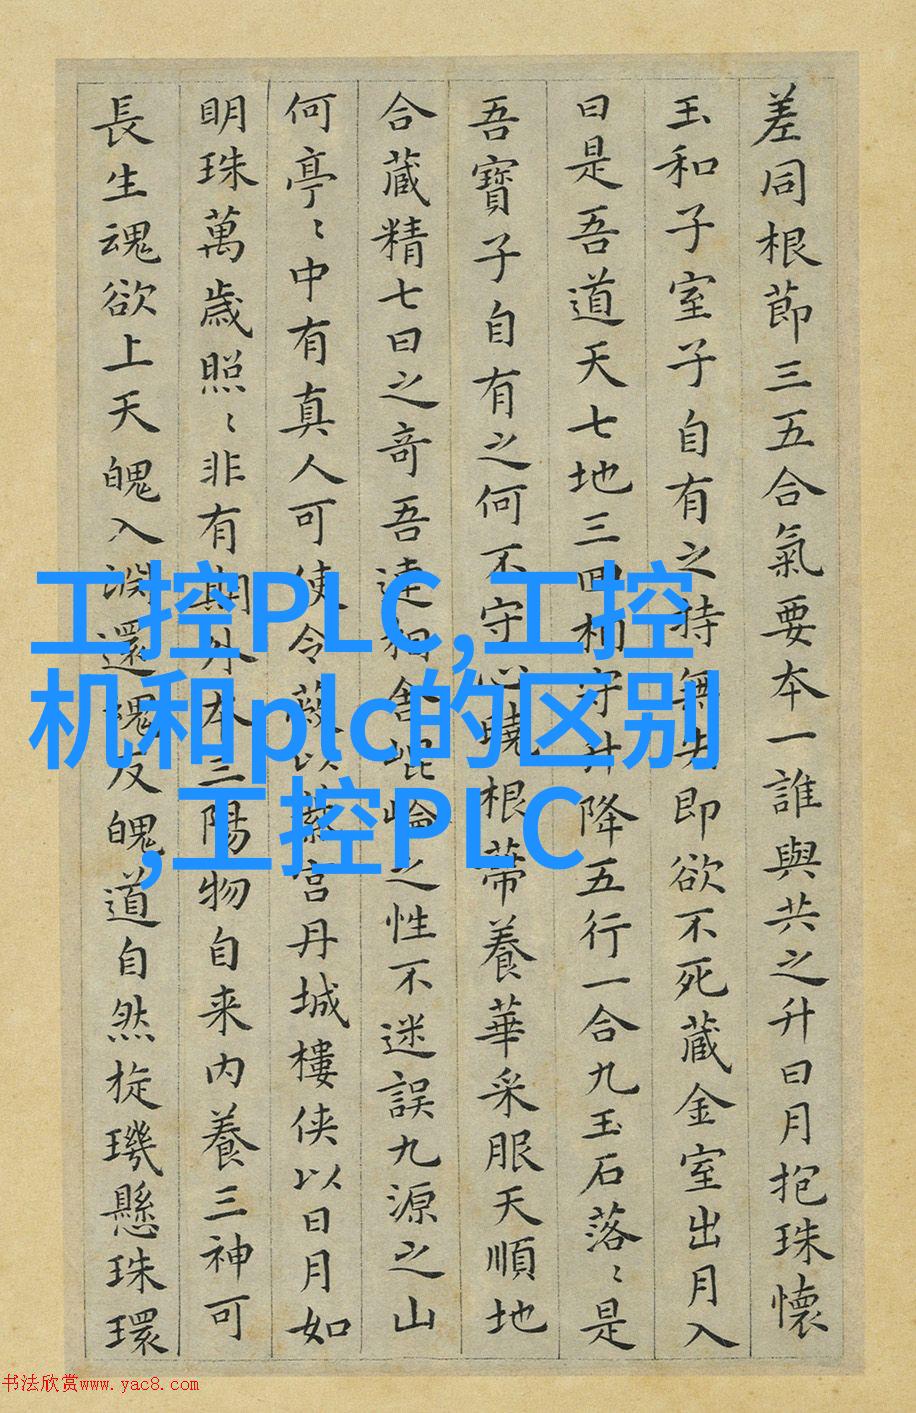 差同根節三五合氣要本一誰與共之升日月抱珠懷
玉和子室子自有之持無失即欲不死藏金室出月入
日是吾道天七地三回相守升降五行一合九玉石落〻是
吾寶子自有之何不守心曉根蒂養華采服天順地
合藏精七日之奇吾連相舍崐崘之性不迷誤九源之山
何亭〻中有真人可使令蔽以紫宫丹城樓侠以日月如
明珠萬歲照〻非有期外本三陽物自来内養三神可
長生魂欲上天魄入淵還魂反魄道自然㫌璣懸珠環
工控PLC,工控
机和plc的区别
,工控PLC
书法欣赏www.yac8.com